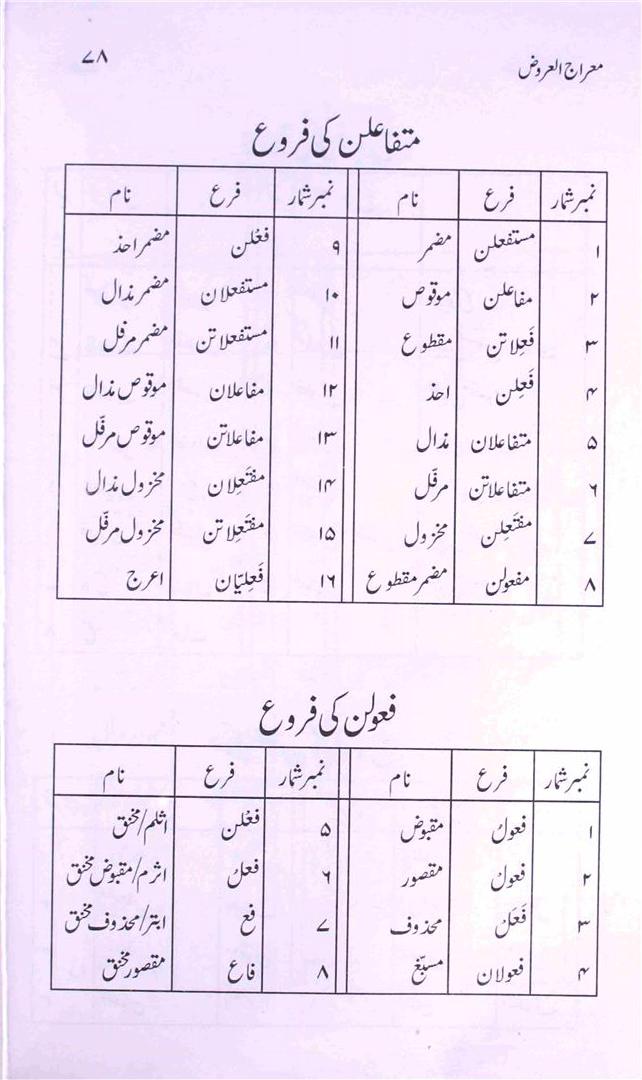 معراج العروض ۷۸
متفاعلن کی فروع
نمبر شمار فرع نام نمبر شمار فرع نام
۱ مستفعلن مضمر ۹ فعْلن مضمر احذ
۲ مفاعلن موقوص ۱۰ مستفعلان مضمر مذال
۳ فَعِلاتن مقطوع ۱۱ مستفعلاتن مضمر مرفل
۴ فَعِلن احذ ۱۲ مفاعلان موقوص مذال
۵ متفاعلان مذال ۱۳ مفاعلاتن موقوص مرفّل
۶ متفاعلاتن مرفّل ۱۴ مفتَعِلان مخزول مذال
۷ مفتَعِلن مخزول ۱۵ مفتَعِلاتن مخزول مرفّل
۸ مفعولن مضمر مقطوع ۱۶ فَعِلیّان اعرج
فعولن کی فروع
نمبر شمار فرع نام نمبر شمار فرع نام
۱ فعولُ مقبوض ۵ فعْلن اثلم/مخنق
۲ فعول مقصور ۶ فعلُ اثرم/مقبوض مخنق
۳ فَعَل محذوف ۷ فع ابتر/محذوف مخنق
۴ فعولان مسبّغ ۸ فاع مقصور مخنق